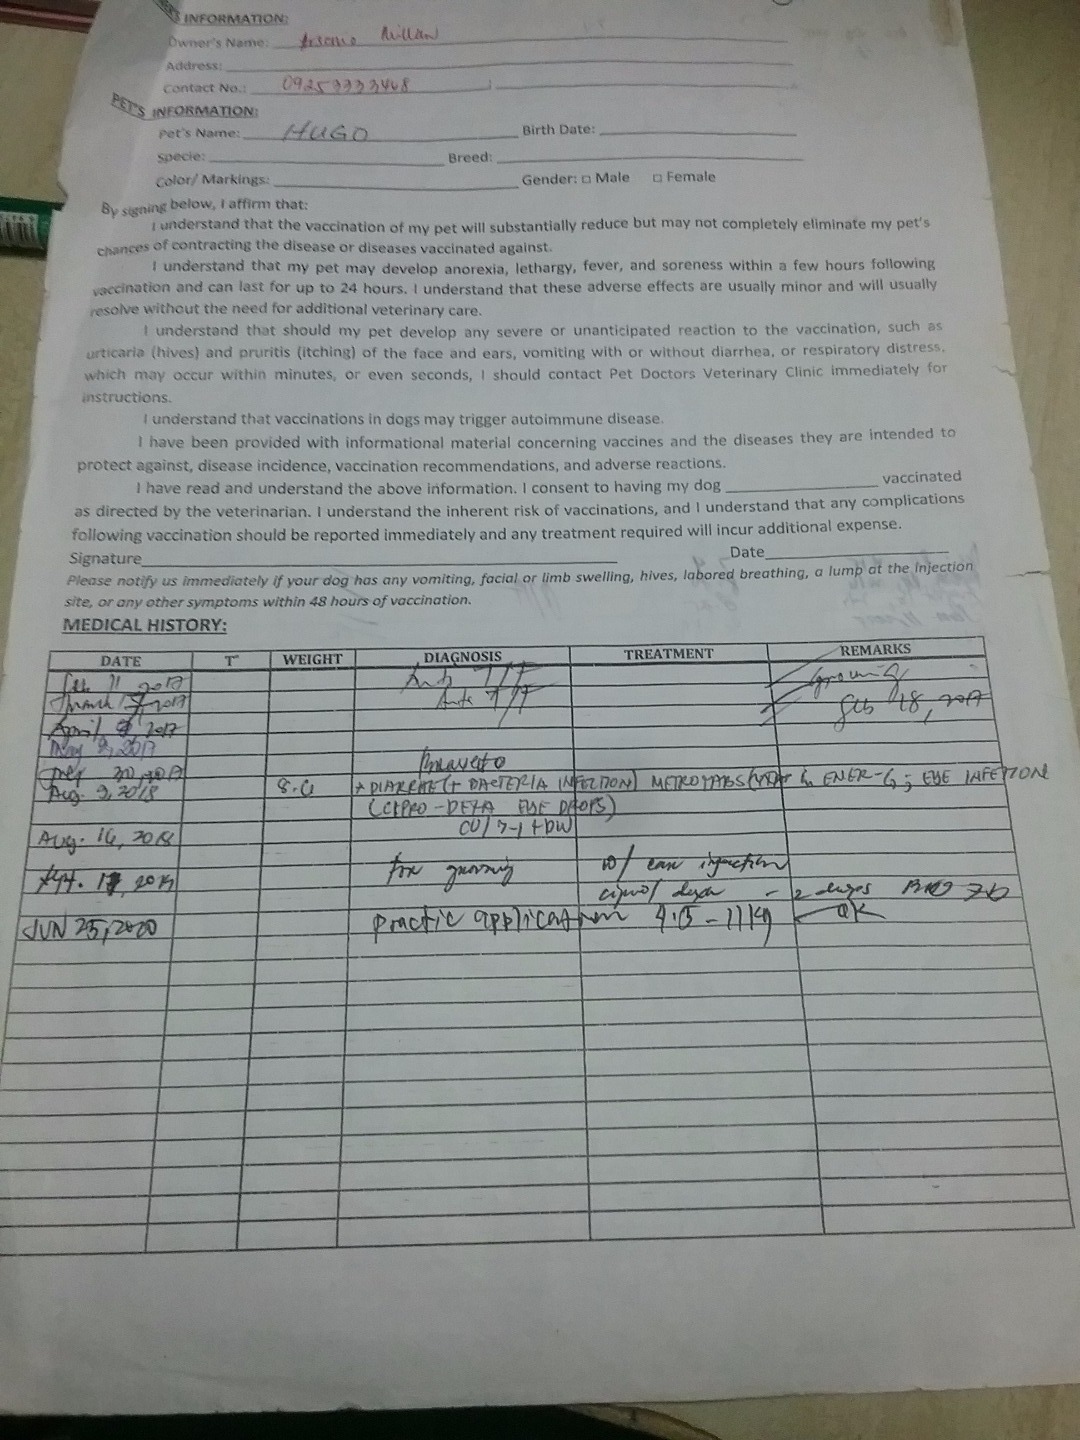 INFORMATION:
Owner's Name: Millan
Address:
Contact No.: 09253333468
PET'S INFORMATION:
Pet's Name: HUGO Birth Date:
Specie: Breed:
Color/ Markings: Gender: □ Male □ Female
By signing below, I affirm that:
I understand that the vaccination of my pet will substantially reduce but may not completely eliminate my pet's
chances of contracting the disease or diseases vaccinated against.
I understand that my pet may develop anorexia, lethargy, fever, and soreness within a few hours following
vaccination and can last for up to 24 hours. I understand that these adverse effects are usually minor and will usually
resolve without the need for additional veterinary care.
I understand that should my pet develop any severe or unanticipated reaction to the vaccination, such as
urticaria (hives) and pruritis (itching) of the face and ears, vomiting with or without diarrhea, or respiratory distress,
which may occur within minutes, or even seconds, I should contact Pet Doctors Veterinary Clinic immediately for
instructions.
I understand that vaccinations in dogs may trigger autoimmune disease.
I have been provided with informational material concerning vaccines and the diseases they are intended to
protect against, disease incidence, vaccination recommendations, and adverse reactions.
I have read and understand the above information. I consent to having my dog vaccinated
as directed by the veterinarian. I understand the inherent risk of vaccinations, and I understand that any complications
following vaccination should be reported immediately and any treatment required will incur additional expense.
Signature Date
Please notify us immediately if your dog has any vomiting, facial or limb swelling, hives, labored breathing, a lump at the injection
site, or any other symptoms within 48 hours of vaccination.
MEDICAL HISTORY:
DATE T° WEIGHT DIAGNOSIS TREATMENT REMARKS
Feb. 11, 2017 Anti T/F grooming
March 2017 Anti T/F Feb 18, 2017
April 9, 2017
May 9, 2017
30, 2017 Bravecto
Aug. 9, 2018 8. + DIARRHE (+ BACTERIA INFECTION) METROTABS & ENER-G; EYE INFETION
(CIPRO-DEXA EYE DROPS)
Aug. 16, 2018 CV/ 7-1 + DW
Sept. 17, 2019 for grooming w/ ear injection
2
JUN 25, 2020 practic application 4.5 - 11 kg OK